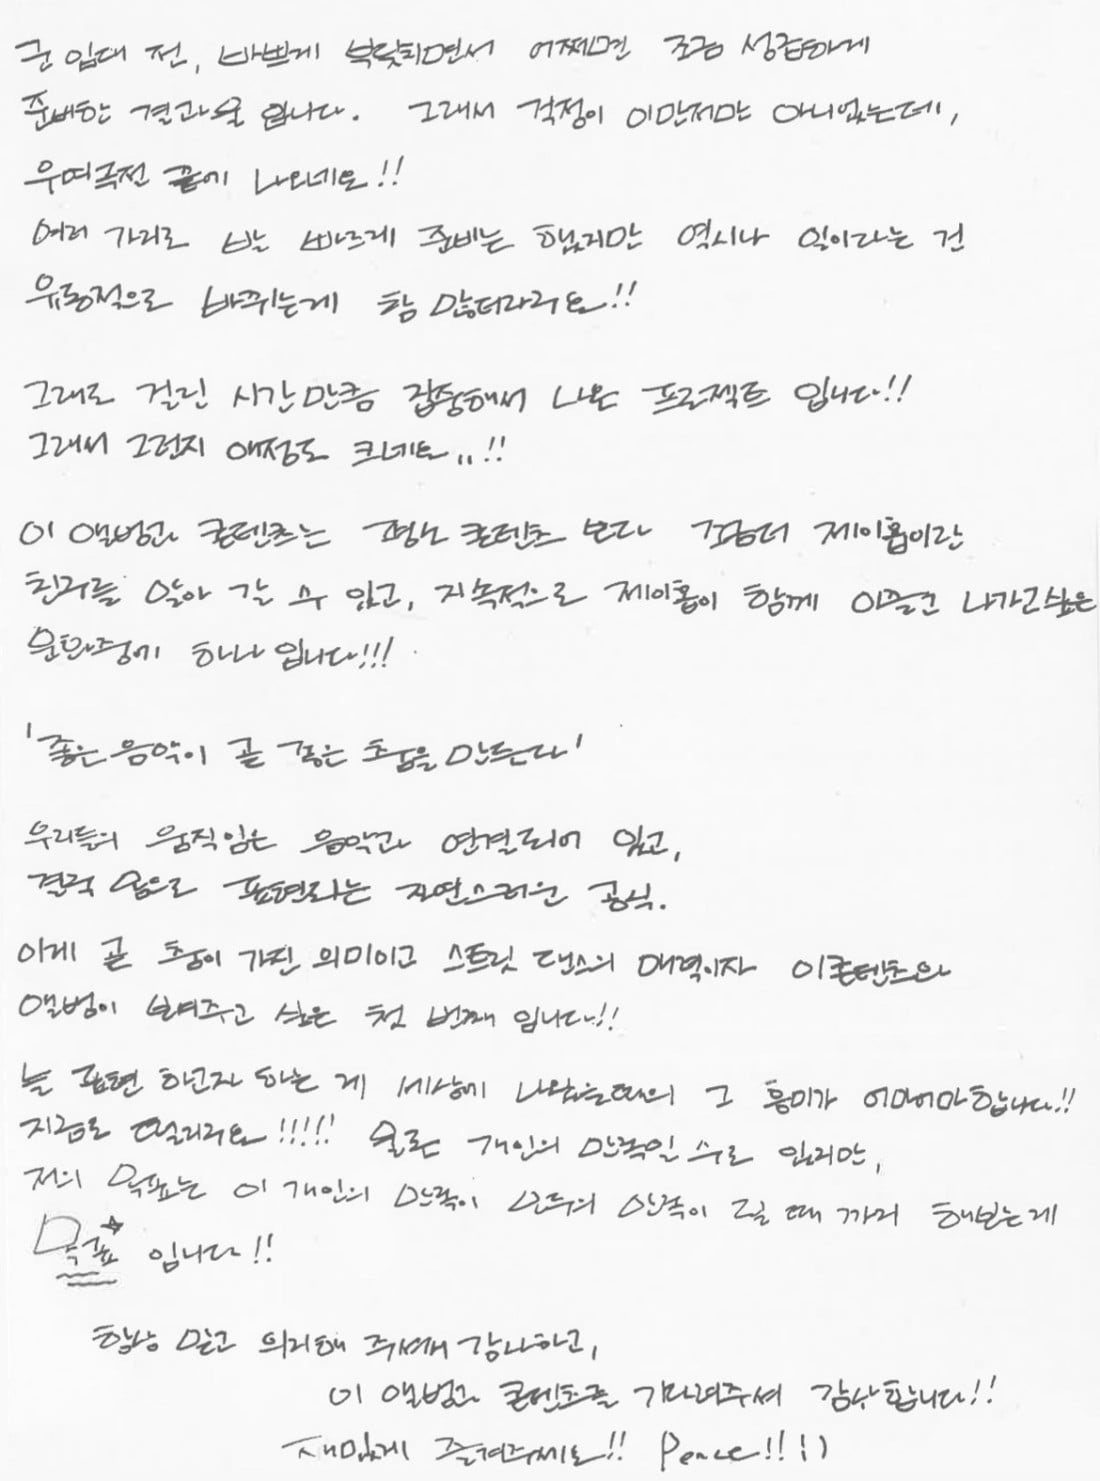 군 입대 전, 바쁘게 부딪히면서 어쩌면 조금 성급하게
준비한 결과물 입니다. 그래서 걱정이 이만저만 아니었는데,
우여곡전 끝에 나오네요!!
여러 가지로 발 빠르게 준비는 했지만 역시나 일이라는 건
유동적으로 바뀌는게 참 많더라구요!!
그래도 걸린 시간만큼 집중해서 나온 프로젝트 입니다!!
그래서 그런지 애정도 크네요..!!
이 앨범과 콘텐츠는 평소 콘텐츠 보다 좀 더 제이홉이란
친구를 알아 갈 수 있고, 지속적으로 제이홉이 함께 이끌고 나가고싶은
문화중에 하나 입니다!!!
'좋은 음악이 곧 좋은 춤을 만든다'
우리들의 움직임은 음악과 연결되어 있고,
결국 몸으로 표현되는 자연스러운 공식.
이게 곧 춤이 가진 의미이고 스트릿 댄스의 매력이자 이콘텐츠와
앨범이 보여주고 싶은 첫 번째 입니다!!
늘 표현 하고자 하는 게 세상에 나왔을때의 그 흥미가 어마어마합니다!!
지금도 떨리구요!!!!! 물론 개인의 만족일 수도 있지만,
저의 목표는 이 개인의 만족이 모두의 만족이 될 때 까지 해보는게
목표 입니다!!
항상 믿고 의지해 주셔서 감사하고,
이 앨범과 콘텐츠를 기다려주셔 감사합니다!!
재밌게 즐겨주세요!! Peace!! :)